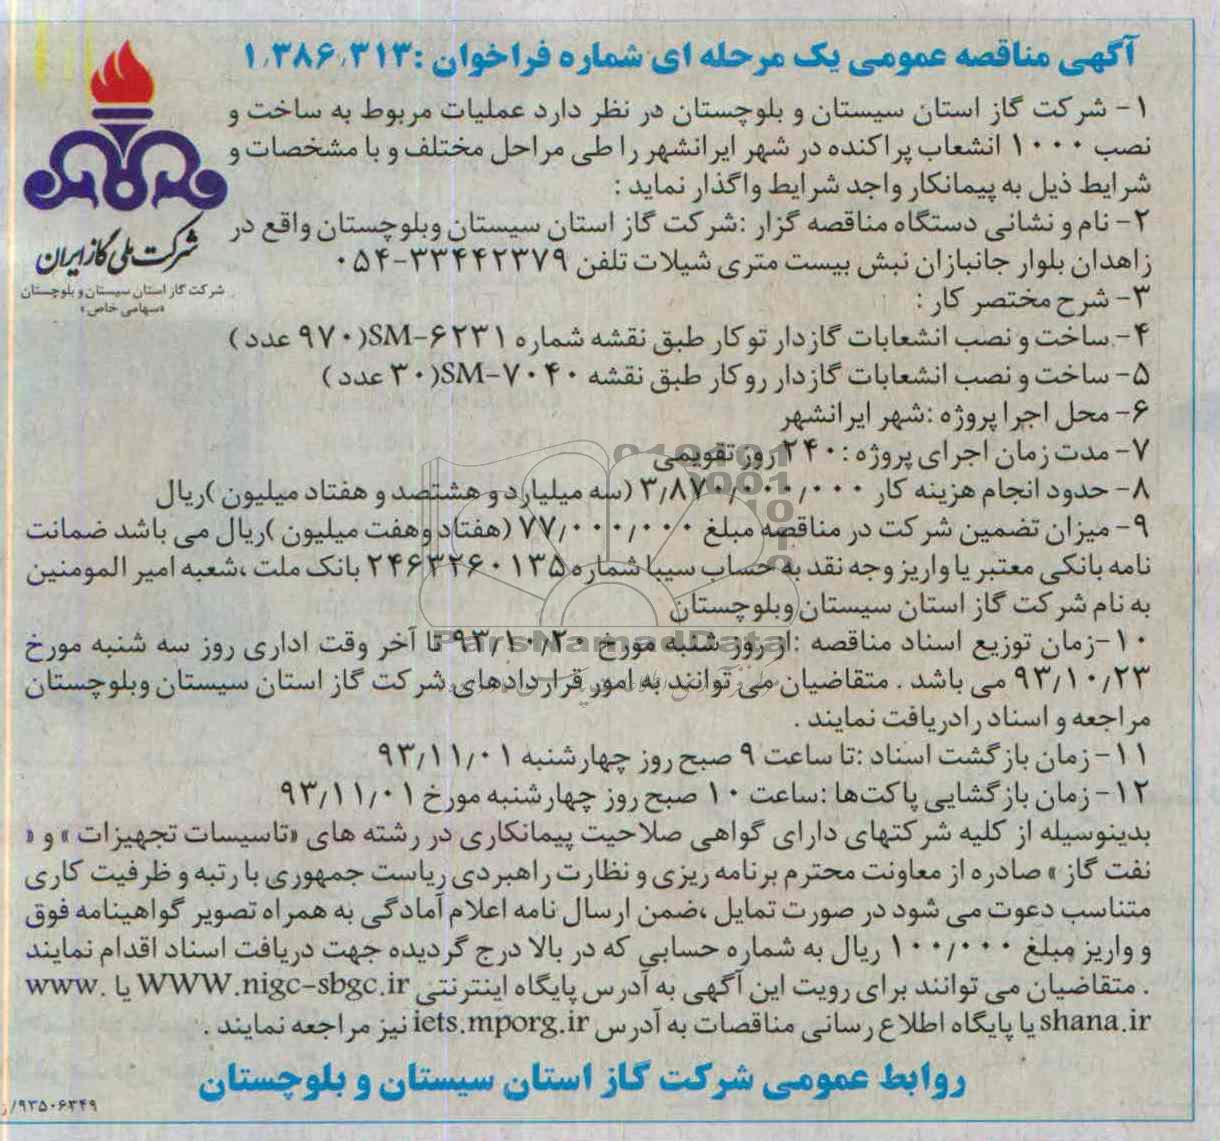 آگهی مناقصه عمومی یک مرحله ای شماره فراخوان :۱،۳۸۶،۳۱۳
شرکت ملی گاز ایران
شرکت گاز استان سیستان و بلوچستان
«سهامی خاص»
۱- شرکت گاز استان سیستان و بلوچستان در نظر دارد عملیات مربوط به ساخت و
نصب ۱۰۰۰ انشعاب پراکنده در شهر ایرانشهر را طی مراحل مختلف و با مشخصات و
شرایط ذیل به پیمانکار واجد شرایط واگذار نماید :
۲- نام و نشانی دستگاه مناقصه گزار :شرکت گاز استان سیستان وبلوچستان واقع در
زاهدان بلوار جانبازان نبش بیست متری شیلات تلفن ۳۳۴۴۲۳۷۹-۰۵۴
۳- شرح مختصر کار :
۴- ساخت و نصب انشعابات گازدار توکار طبق نقشه شماره SM-۶۲۳۱(۹۷۰ عدد )
۵- ساخت و نصب انشعابات گازدار روکار طبق نقشه SM-۷۰۴۰(۳۰ عدد )
۶- محل اجرا پروژه :شهر ایرانشهر
۷- مدت زمان اجرای پروژه :۲۴۰ روز تقویمی
۸- حدود انجام هزینه کار ۳٫۸۷۰٫۰۰۰٫۰۰۰ (سه میلیارد و هشتصد و هفتاد میلیون )ریال
۹- میزان تضمین شرکت در مناقصه مبلغ ۷۷٫۰۰۰٫۰۰۰ (هفتاد وهفت میلیون )ریال می باشد ضمانت
نامه بانکی معتبر یا واریز وجه نقد به حساب سیبا شماره ۲۴۶۳۲۶۰۱۳۵ بانک ملت ،شعبه امیر المومنین
به نام شرکت گاز استان سیستان وبلوچستان
۱۰-زمان توزیع اسناد مناقصه :از روز شنبه مورخ ۹۳٫۱۰٫۲۰ تا آخر وقت اداری روز سه شنبه مورخ
۹۳٫۱۰٫۲۳ می باشد . متقاضیان می توانند به امور قراردادهای شرکت گاز استان سیستان وبلوچستان
مراجعه و اسناد رادریافت نمایند .
۱۱- زمان بازگشت اسناد :تا ساعت ۹ صبح روز چهارشنبه ۹۳٫۱۱٫۰۱
۱۲- زمان بازگشایی پاکت‌ها :ساعت ۱۰ صبح روز چهارشنبه مورخ ۹۳٫۱۱٫۰۱
بدینوسیله از کلیه شرکتهای دارای گواهی صلاحیت پیمانکاری در رشته های «تاسیسات تجهیزات » و «
نفت گاز » صادره از معاونت محترم برنامه ریزی و نظارت راهبردی ریاست جمهوری با رتبه و ظرفیت کاری
متناسب دعوت می شود در صورت تمایل ،ضمن ارسال نامه اعلام آمادگی به همراه تصویر گواهینامه فوق
و واریز مبلغ ۱۰۰٫۰۰۰ ریال به شماره حسابی که در بالا درج گردیده جهت دریافت اسناد اقدام نمایند
. متقاضیان می توانند برای رویت این آگهی به آدرس پایگاه اینترنتی WWW.nigc-sbgc.ir یا www.
shana.ir یا پایگاه اطلاع رسانی مناقصات به آدرس iets.mporg.ir نیز مراجعه نمایند .
روابط عمومی شرکت گاز استان سیستان و بلوچستان
۹۳۵۰۶۳۴۹/
ParsNamadData